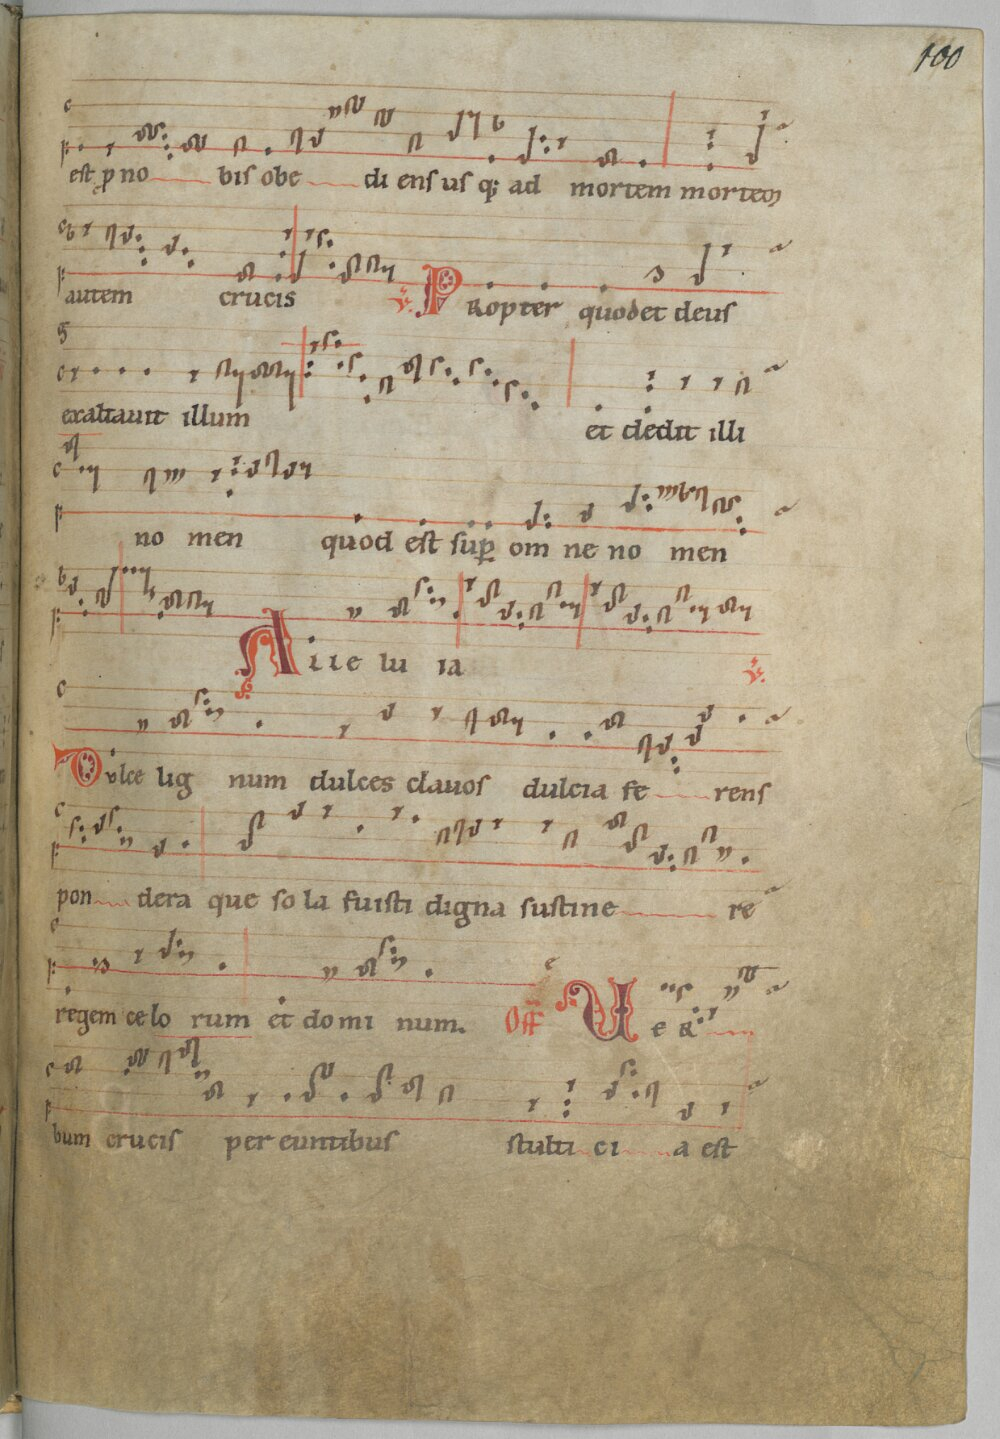 100
est p no bis obe di ens us q; ad mortem mortem
autem crucis ℣. PRopter quod et deus
exaltauit illum et dedit illi
no men quod est sup om ne no men
Alle lu ia ℣.
Dulce lig num dulces clauos dulcia fe rens
pon dera que so la fuisti digna sustine re
regem celo rum et domi num. Off Ver
bum crucis per euntibus stulti ci a est